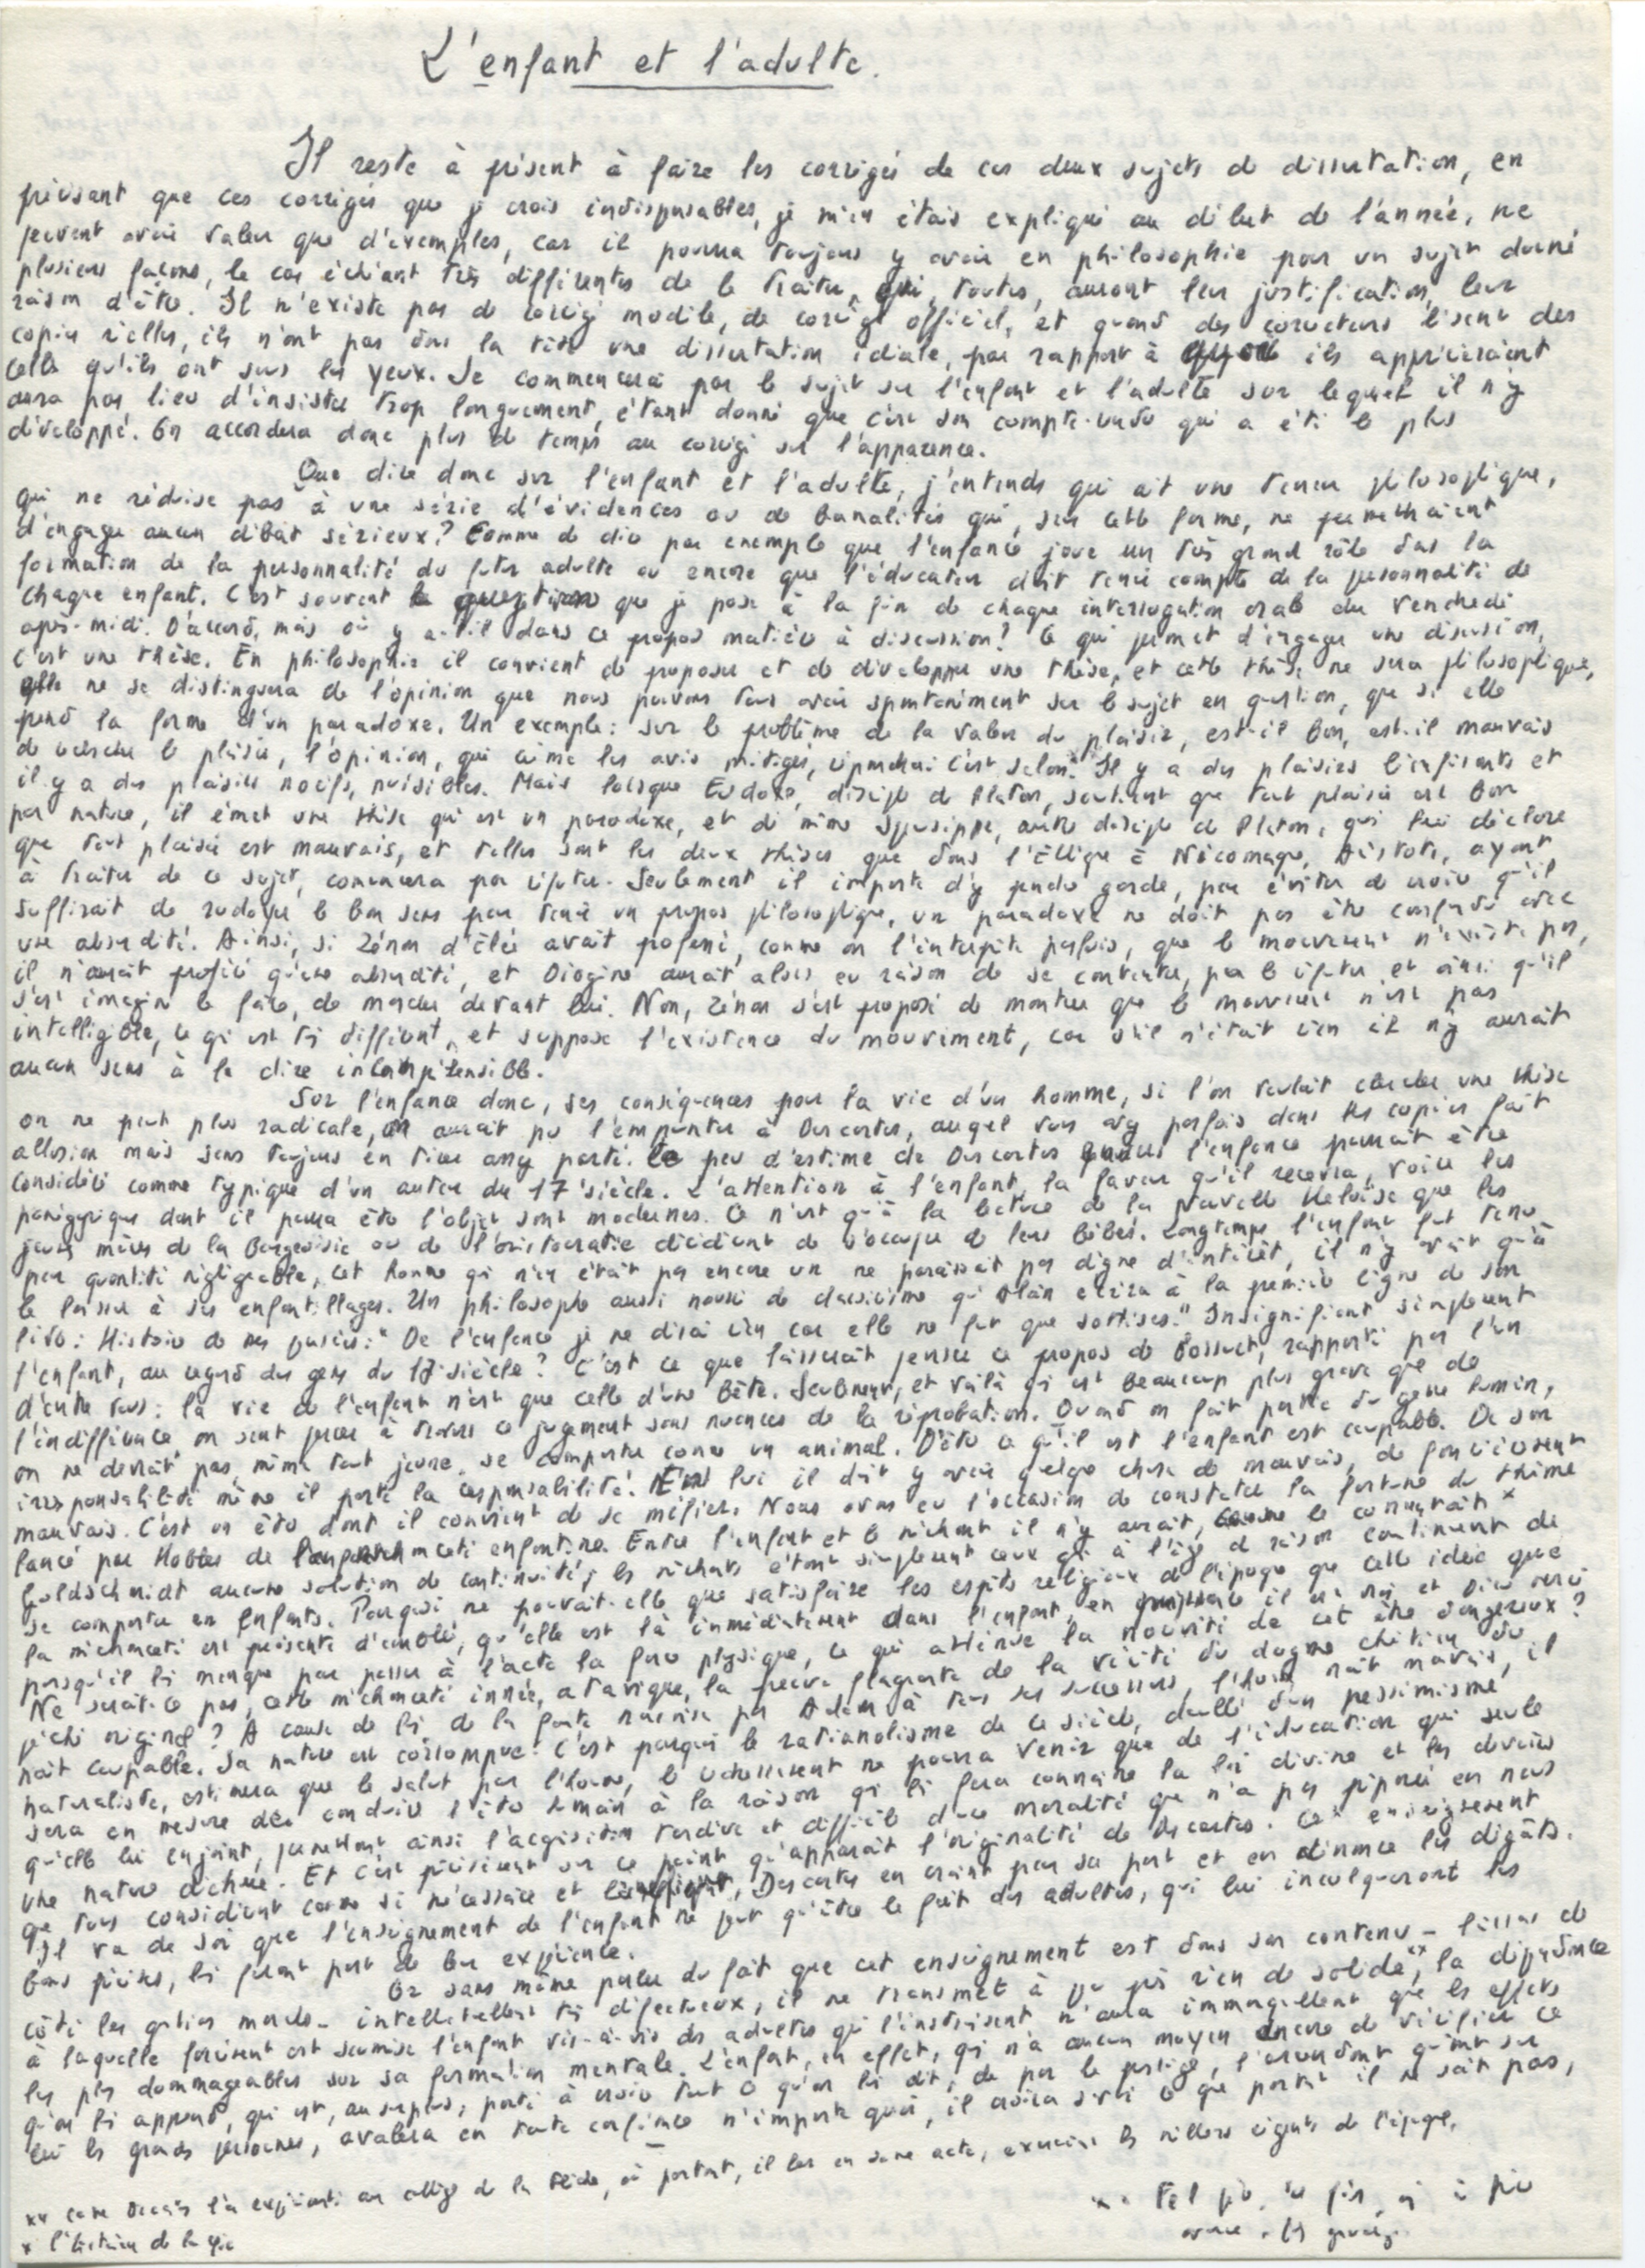 L'enfant et l'adulte.
Il reste à présent à faire les corrigés de ces deux sujets de dissertation, en
précisant que ces corrigés que je crois indispensables, je m'en étais expliqué au début de l'année, ne
peuvent avoir valeur que d'exemples, car il pourra toujours y avoir en philosophie pour un sujet donné
plusieurs façons, le cas échéant très différentes de le traiter, qui, toutes, auront leur justification, leur
raison d'être. Il n'existe pas de corrigé modèle, de corrigé officiel, et quand des correcteurs lisent des
copies réelles, ils n'ont pas dans la tête une dissertation idéale, par rapport à ils apprécieraient
celles qu'ils ont sous les yeux. Je commencerai par le sujet sur l'enfant et l'adulte sur lequel il n'y
aura pas lieu d'insister trop longuement, étant donné que c'est son compte-rendu qui a été le plus
développé. On accordera donc plus de temps au corrigé sur l'apparence.
Que dire donc sur l'enfant et l'adulte, j'entends qui ait une teneur philosophique,
qui ne se réduise pas à une série d'évidences ou de banalités qui, sous cette forme, ne permettraient
d'engager aucun débat sérieux? Comme de dire par exemple que l'enfance joue un très grand rôle dans la
formation de la personnalité du futur adulte ou encore que l'éducateur doit tenir compte de la personnalité de
chaque enfant. C'est souvent la question que je pose à la fin de chaque interrogation orale du vendredi
après-midi. D'accord, mais où y a-t-il dans ce propos matière à discussion? Ce qui permet d'engager une discussion,
c'est une thèse. En philosophie il convient de proposer et de développer une thèse, et cette thèse ne sera philosophique,
elle ne se distinguera de l'opinion que nous pouvons tous avoir spontanément sur le sujet en question, que si elle
prend la forme d'un paradoxe. Un exemple: sur le problème de la valeur du plaisir, est-il bon, est-il mauvais
de rechercher le plaisir, l'opinion, qui aime les avis mitigés, répondra: c'est selon. Il y a des plaisirs bienfaisants et
il y a des plaisirs nocifs, nuisibles. Mais lorsque Eudoxe, disciple de Platon, soutient que tout plaisir est bon
par nature, il émet une thèse qui est un paradoxe, et de même Speusippe, autre disciple de Platon, qui lui déclare
que tout plaisir est mauvais, et telles sont les deux thèses que dans l'Ethique à Nicomaque, Aristote, ayant
à traiter de ce sujet, commencera par réfuter. Seulement il importe d'y prendre garde, pour éviter de croire qu'il
suffirait de rudoyer le bon sens pour tenir un propos philosophique, un paradoxe ne doit pas être confondu avec
une absurdité. Ainsi, si Zénon d'Élée avait professé, comme on l'interprète parfois, que le mouvement n'existe pas,
il n'aurait proféré qu'une absurdité, et Diogène aurait alors eu raison de se contenter, pour le réfuter, et ainsi qu'il
s'est imaginé le faire, de marcher devant lui. Non, Zénon s'est proposé de montrer que le mouvement n'est pas
intelligible, ce qui est très différent, et suppose l'existence du mouvement, car s'il n'était rien il n'y aurait
aucun sens à le dire incompréhensible.
Sur l'enfance donc, ses conséquences pour la vie d'un homme, si l'on voulait chercher une thèse
on ne peut plus radicale, on aurait pu l'emprunter à Descartes, auquel vous avez parfois dans les copies fait
allusion mais sans toujours en tirer assez parti. Le peu d'estime de Descartes pour l'enfance pourrait être
considéré comme typique d'un auteur du 17 siècle. L'attention à l'enfant, la faveur qu'il recevra, voire les
panégyriques dont il pourra être l'objet sont modernes. Ce n'est qu'à la lecture de la Nouvelle Héloïse que les
jeunes mères de la bourgeoisie ou de l'aristocratie décident de s'occuper de leurs bébés. Longtemps l'enfant fut tenu
pour quantité négligeable, cet homme qui n'en était pas encore un ne paraissait pas digne d'intérêt, il n'y avait qu'à
le laisser à ses enfantillages. Un philosophe aussi nourri de classicisme qu'Alain écrira à la première ligne de son
livre: Histoire de mes pensées: "De l'enfance je ne dirai rien car elle ne fut que sottises." Insignifiant simplement
l'enfant, au regard des gens du 17 siècle? C'est ce que laisserait penser ce propos de Bossuet, rapporté par l'un
d'entre vous: la vie de l'enfant n'est que celle d'une bête. Seulement, et voilà qui est beaucoup plus grave que de
l'indifférence on sent percer à travers ce jugement sans nuances de la réprobation. Quand on fait partie du genre humain,
on ne devrait pas, même tout jeune, se comporter comme un animal. D'être ce qu'il est l'enfant est coupable. De son
irresponsabilité même il porte la responsabilité. En lui il doit y avoir quelque chose de mauvais, de foncièrement
mauvais. C'est un être dont il convient de se méfier. Nous avons eu l'occasion de constater la fortune du thème
lancé par Hobbes de méchanceté enfantine. Entre l'enfant et le méchant il n'y aurait, comme le commentait *
Goldschmidt aucune solution de continuité, les méchants étant simplement ceux qui à l'âge de raison continuent de
se comporter en enfants. Pourquoi ne pouvait-elle que satisfaire les esprits religieux de l'époque que cette idée que
la méchanceté est présente d'emblée, qu'elle est là immédiatement dans l'enfant, en il est vrai et Dieu merci
puisqu'il lui manque pour passer à l'acte la force physique, ce qui atténue la nocivité de cet être dangereux?
Ne serait-ce pas, cette méchanceté innée, atavique, la preuve flagrante de la vérité du dogme chrétien du
péché originel? A cause de lui, de la faute transmise par Adam à tous ses successeurs, l'homme naît mauvais, il
naît coupable. Sa nature est corrompue. C'est pourquoi le rationalisme de ce siècle, doublé d'un pessimisme
naturaliste, estimera que le salut pour l'homme, le redressement ne pourra venir que de l'éducation qui seule
sera en mesure de conduire l'être humain à la raison qui lui fera connaître la loi divine et les devoirs
qu'elle lui enjoint, permettant ainsi l'acquisition tardive et difficile d'une moralité que n'a pas préparée en nous
une nature déchue. Et c'est précisément sur ce point qu'apparaît l'originalité de Descartes. Cet enseignement
que tous considèrent comme si nécessaire et, Descartes en craint pour sa part et en dénonce les dégâts.
Il va de soi que l'enseignement de l'enfant ne peut qu'être le fait des adultes, qui lui inculqueront les
bons principes, lui feront part de leur expérience.
Or sans même parler du fait que cet enseignement est dans son contenu - laissons de
côté les questions morales - intellectuellement très défectueux, il ne transmet à peu près rien de solide**, la dépendance
à laquelle forcément est soumise l'enfant vis-à-vis des adultes qui l'instruisent n'aura immanquablement que les effets
les plus dommageables sur sa formation mentale. L'enfant, en effet, qui n'a aucun moyen encore de vérifier ce
qu'on lui apprend, qui est, au surplus, porté à croire tout ce qu'on lui dit, de par le prestige, l'ascendant qu'ont sur
lui les grandes personnes, avalera en toute confiance n'importe quoi, il croira savoir ce que pourtant il ne sait pas,
** comme Descartes l'a expérimenté au collège de la Flèche, où pourtant, il leur en donne acte, exercèrent les meilleurs régents de l'époque.
* l'histoire de la
Tel père, tel fils